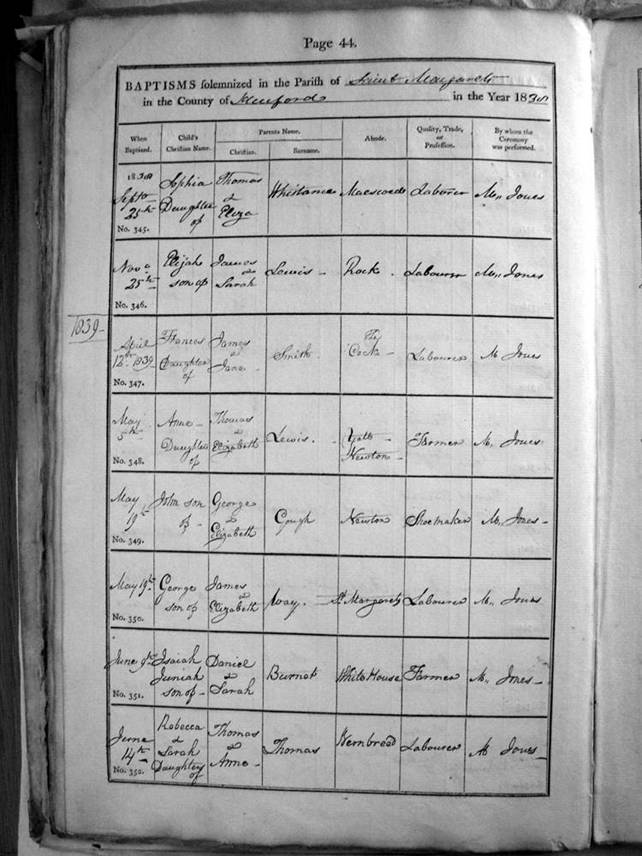 Page 44.
BAPTISMS solemnized in the Parish of Saint Margarets
in the County of Hereford in the Year 1838
When Baptized. Child's Christian Name. Parents Name. Christian. Surname. Abode. Quality, Trade, or Profession. By whom the Ceremony was performed.
1838
Sept 25th Sophia Daughter of Thomas & Eliza Whistance Maescoed Laborer Mr. Jones
No. 345.
Nov 25th Elijah son of James & Sarah Lewis Rock Labourer Mr. Jones
No. 346.
1839
April 12th 1839 Frances Daughter of James & Jane Smith The Cock Labourer Mr Jones
No. 347.
May 5th Anne Daughter of Thomas & Elizabeth Lewis Newton Farmer Mr. Jones
No. 348.
May 19th John son of George & Elizabeth Gough Newton Shoemaker Mr. Jones
No. 349.
May 19th George son of James & Elizabeth St Margarets Labourer Mr. Jones
No. 350.
June 9th Isaiah Juniah son of Daniel & Sarah Burnet White House Farmer Mr. Jones
No. 351.
June 14th Rebecca & Sarah Daughters of Thomas & Anne Thomas Labourer Mr Jones
No. 352.